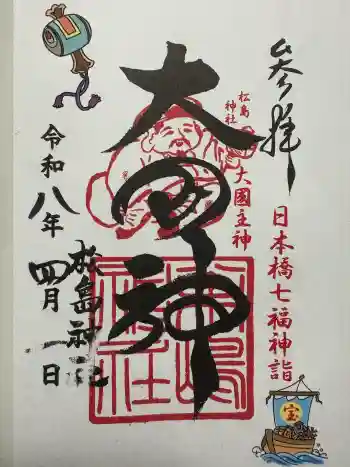 奉拝
日本橋七福神詣
松島神社
大國主神
大国神
松島神社
令和八年四月一日
松島神社
宝